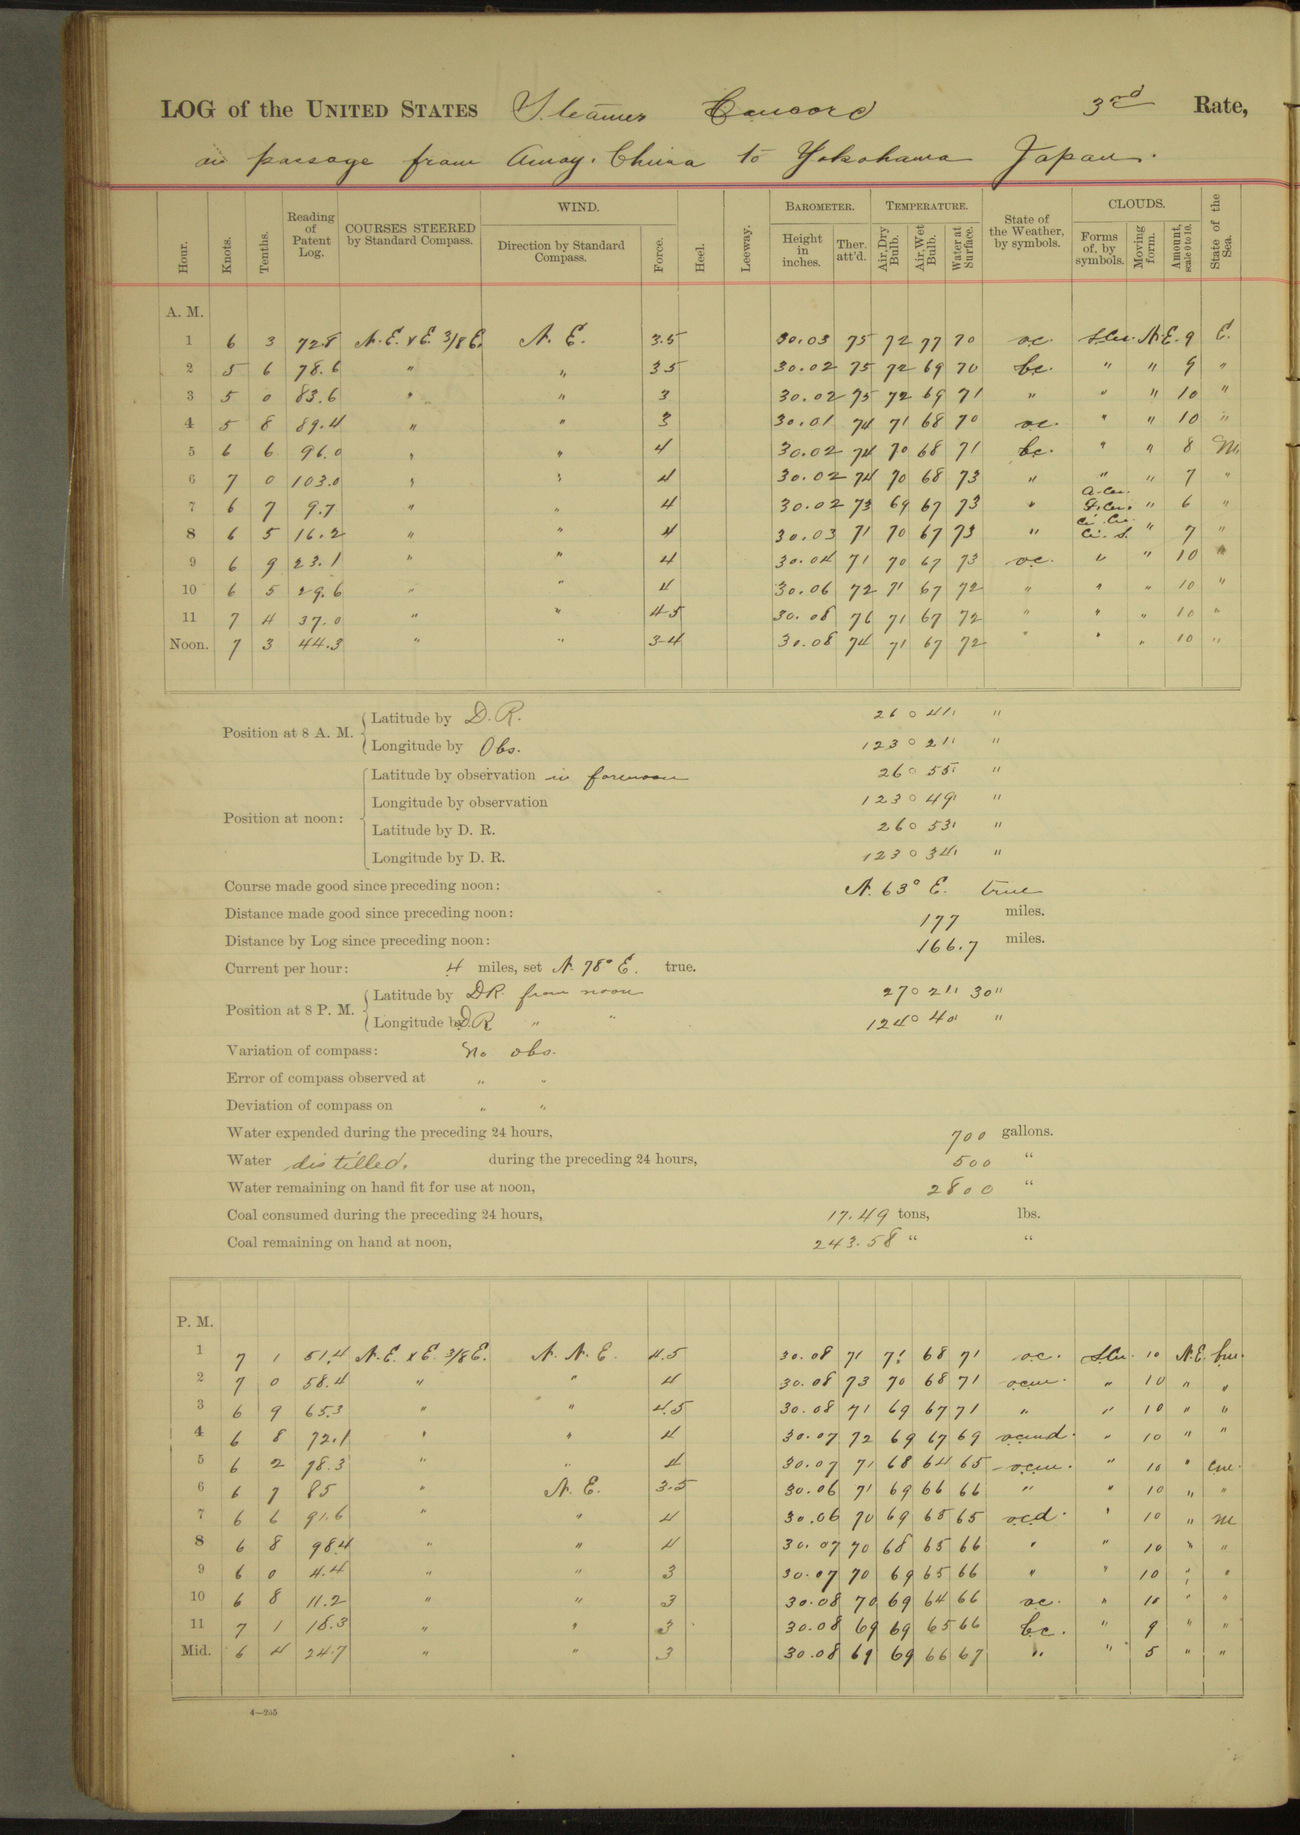 LOG of the UNITED STATES Steamer Concord 3rd Rate,
on passage from Amoy, China to Yokohama Japan.
Hour. Knots. Tenths. Reading of Patent Log. COURSES STEERED by Standard Compass. WIND. Direction by Standard Compass. Force. Heel. Leeway. BAROMETER. Height in inches. Ther. att'd. TEMPERATURE. Air, Dry Bulb. Air, Wet Bulb. Water at Surface. State of the Weather, by symbols. CLOUDS. Forms of, by symbols. Moving form. Amount, scale 0 to 10. State of the Sea.
A. M.
1 6 3 72.8 N.E. x E. 3/8 E. N. E. 3.5 30.03 75 72 77 70 oc. S.Cu. N.E. 9 E.
2 5 6 78.6 " " 3.5 30.02 75 72 69 70 bc. " " 9 "
3 5 0 83.6 " " 3 30.02 75 72 69 71 " " " 10 "
4 5 8 89.4 " " 3 30.01 74 71 68 70 oc. " " 10 "
5 6 6 96.0 " " 4 30.02 74 70 68 71 bc. " " 8 M
6 7 0 103.0 " " 4 30.02 74 70 68 73 " " " 7 "
7 6 7 9.7 " " 4 30.02 73 69 67 73 " A-Cu. S.Cu. " 6 "
8 6 5 16.2 " " 4 30.03 71 70 67 73 " Ci. Cu. Ci. S. " 7 "
9 6 9 23.1 " " 4 30.04 71 70 67 73 oc. " " 10 "
10 6 5 29.6 " " 4 30.06 72 71 67 72 " " " 10 "
11 7 4 37.0 " " 4-5 30.08 76 71 67 72 " " " 10 "
Noon. 7 3 44.3 " " 3-4 30.08 74 71 67 72 " " " 10 "
Position at 8 A. M. Latitude by D. R. 26° 41' "
Longitude by Obs. 123° 21' "
Position at noon: Latitude by observation in forenoon 26° 55' "
Longitude by observation 123° 49' "
Latitude by D. R. 26° 53' "
Longitude by D. R. 123° 34' "
Course made good since preceding noon: N. 63° E. true
Distance made good since preceding noon: 177 miles.
Distance by Log since preceding noon: 166.7 miles.
Current per hour: .4 miles, set N. 78° E. true.
Position at 8 P. M. Latitude by DR from noon 27° 21' 30"
Longitude by D.R. " " 124° 40' "
Variation of compass: No obs.
Error of compass observed at " "
Deviation of compass on " "
Water expended during the preceding 24 hours, 700 gallons.
Water distilled. during the preceding 24 hours, 500 "
Water remaining on hand fit for use at noon, 2800 "
Coal consumed during the preceding 24 hours, 17.49 tons, lbs.
Coal remaining on hand at noon, 243.58 " "
P. M.
1 7 1 51.4 N.E. x E. 3/8 E. N. N. E. 4.5 30.08 71 71 68 71 oc. S.Cu. 10 N.E.
2 7 0 58.4 " " 4 30.08 73 70 68 71 ocm. " 10 " "
3 6 9 65.3 " " 4.5 30.08 71 69 67 71 " " 10 " "
4 6 8 72.1 " " 4 30.07 72 69 67 69 ocmd. " 10 " "
5 6 2 78.3 " " 4 30.07 71 68 64 65 ocm. " 10 "
6 6 7 85 " N. E. 3.5 30.06 71 69 66 66 " " 10 " "
7 6 6 91.6 " " 4 30.06 70 69 65 65 ocd. " 10 " M
8 6 8 98.4 " " 4 30.07 70 68 65 66 " " 10 " "
9 6 0 4.4 " " 3 30.07 70 69 65 66 " " 10 " "
10 6 8 11.2 " " 3 30.08 70 69 64 66 oc. " 10 " "
11 7 1 18.3 " " 3 30.08 69 69 65 66 bc. " 9 " "
Mid. 6 4 24.7 " " 3 30.08 69 69 66 67 " " 5 " "
4—255